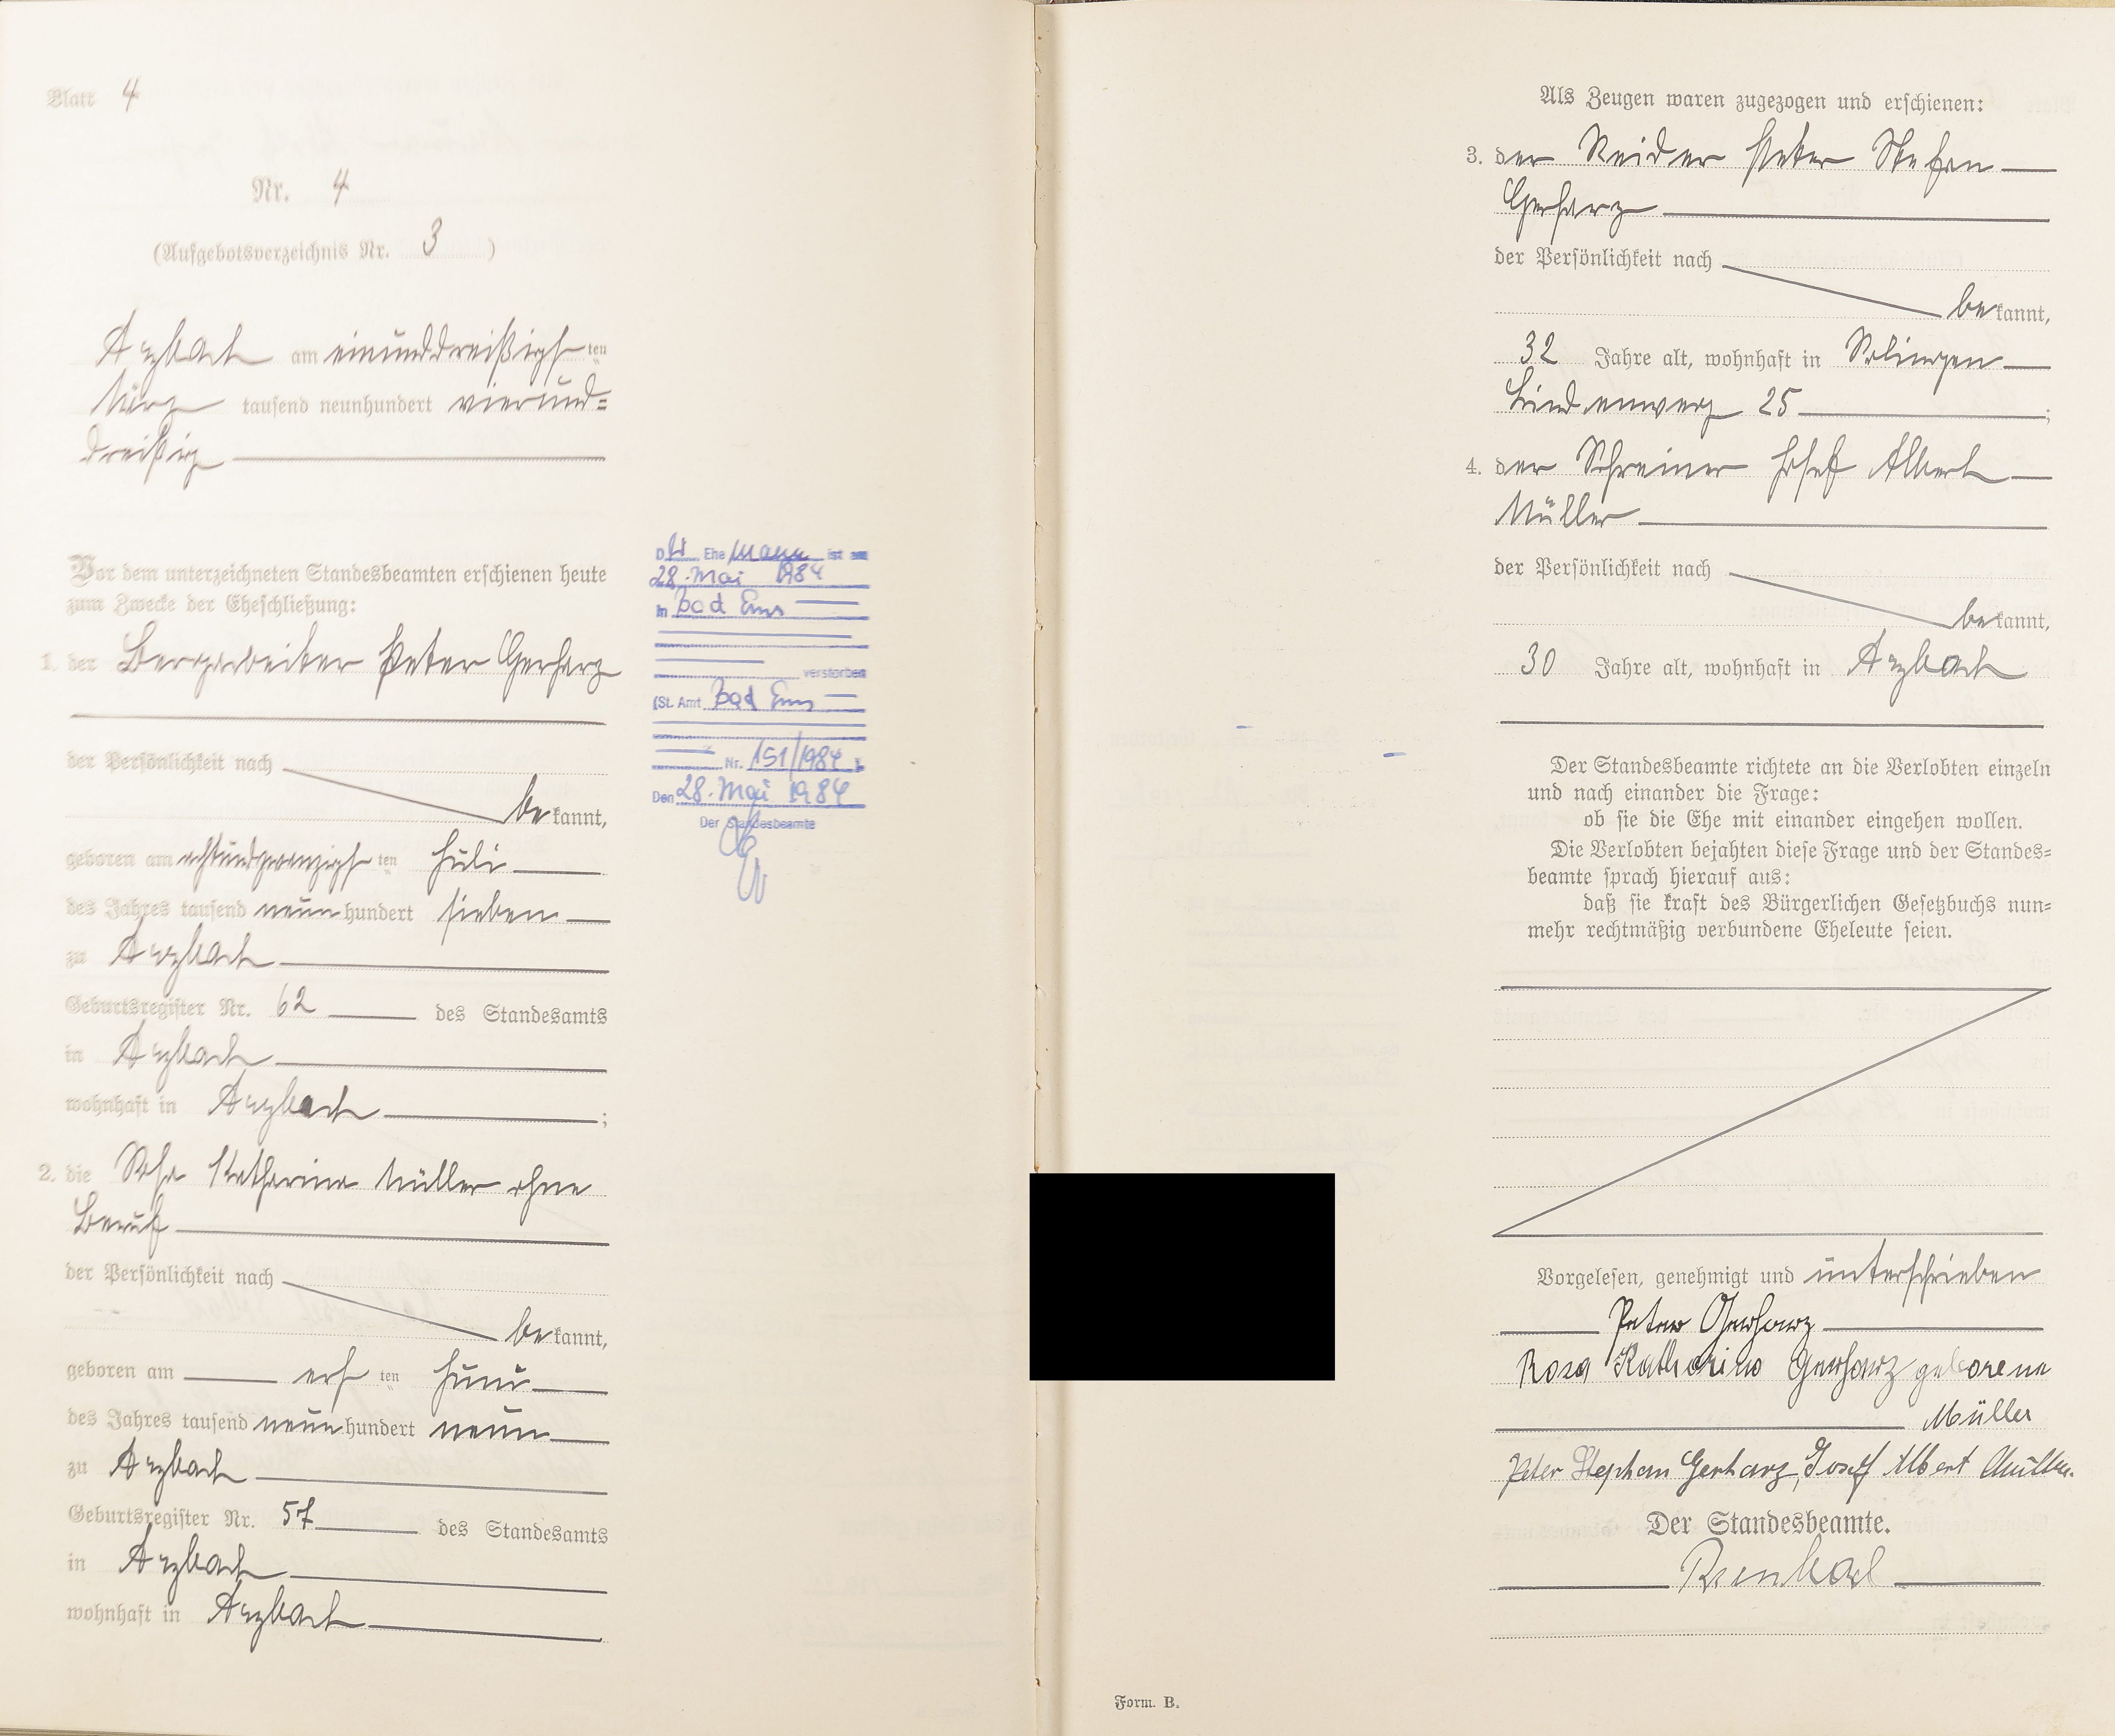 Blatt 4
Nr. 4
(Aufgebotsverzeichnis Nr. 3)
Arzbach am einunddreißigsten
März tausend neunhundert vierund=
dreißig
Vor dem unterzeichneten Standesbeamten erschienen heute
zum Zwecke der Eheschließung:
1. der Bergarbeiter Peter Gerharz
der Persönlichkeit nach
bekannt,
geboren am achtundzwanzigsten Juli
des Jahres tausend neunhundert sieben
zu Arzbach
Geburtsregister Nr. 62 des Standesamts
in Arzbach
wohnhaft in Arzbach;
2. die Rosa Katharina Müller ohne
Beruf
der Persönlichkeit nach
bekannt,
geboren am ersten Juni
des Jahres tausend neunhundert neun
zu Arzbach
Geburtsregister Nr. 57 des Standesamts
in Arzbach
wohnhaft in Arzbach
Der Ehemann ist am
28. Mai 1984
in Bad Ems
verstorben
(St. Amt Bad Ems
Nr. 151/1984).
Den 28. Mai 1984
Der Standesbeamte
Als Zeugen waren zugezogen und erschienen:
3. der Peter Stefan
Gerharz
der Persönlichkeit nach
bekannt,
32 Jahre alt, wohnhaft in Solingen
Lindenweg 25;
4. der Schreiner Josef Albert
Müller
der Persönlichkeit nach
bekannt,
30 Jahre alt, wohnhaft in Arzbach
Der Standesbeamte richtete an die Verlobten einzeln
und nach einander die Frage:
ob sie die Ehe mit einander eingehen wollen.
Die Verlobten bejahten diese Frage und der Standes=
beamte sprach hierauf aus:
daß sie kraft des Bürgerlichen Gesetzbuchs nun=
mehr rechtmäßig verbundene Eheleute seien.
Vorgelesen, genehmigt und unterschrieben
Peter Gerharz
Rosa Katharina Gerharz geborene
Müller
Peter Stephan Gerharz, Josef Albert Müller.
Der Standesbeamte.
Form. B.